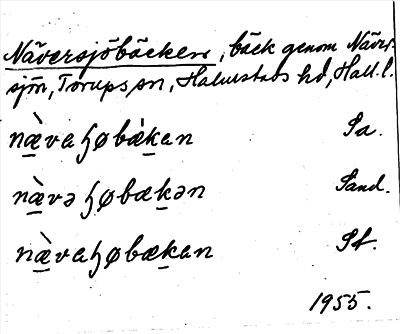 Näversjöbäcken, bäck genom Näver-
sjön, Torups sn, Halmstads hd, Hall. l.
næ̀vaɧøbæ̀kan Sa.
næ̀vəɧøbækən Sand.
næ̀vaɧøbækan St.
1955.